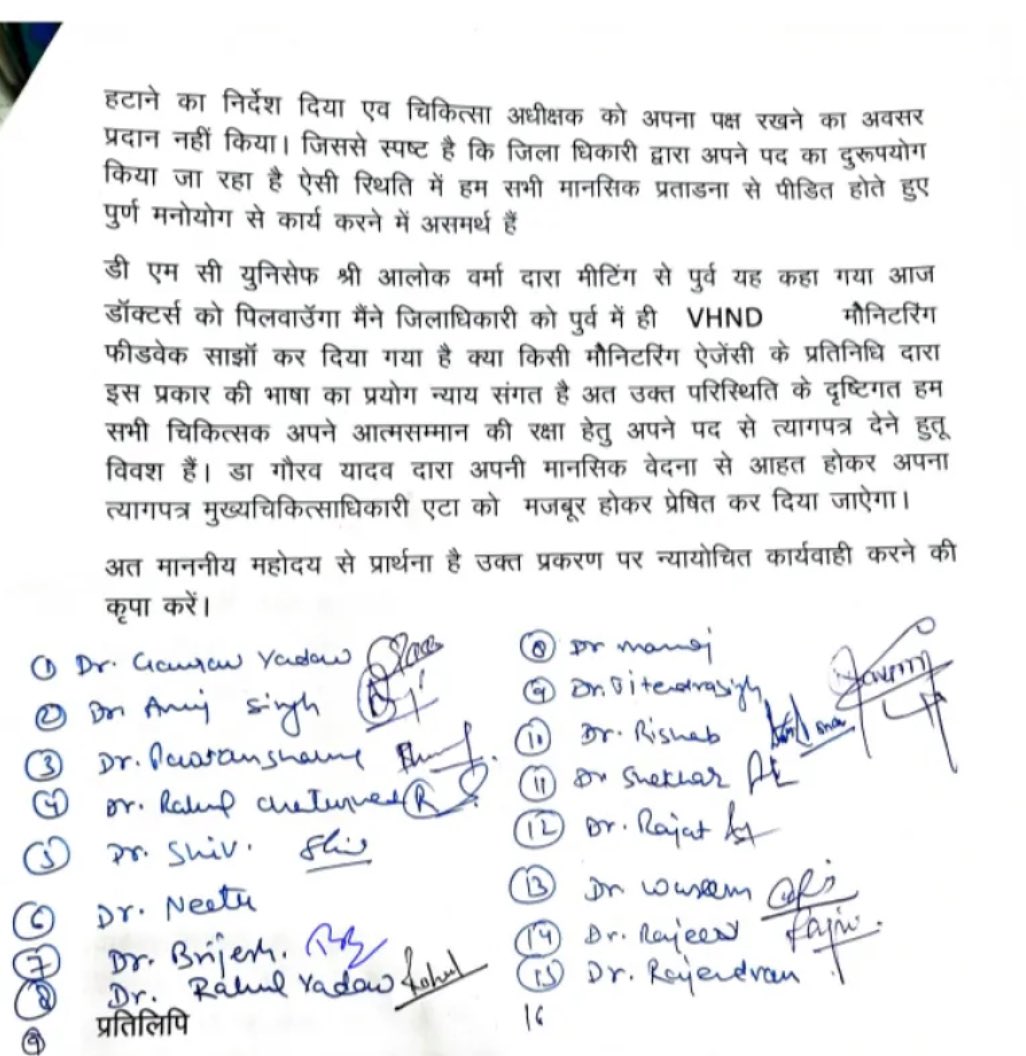 हटाने का निर्देश दिया एव चिकित्सा अधीक्षक को अपना पक्ष रखने का अवसर
प्रदान नहीं किया। जिससे स्पष्ट है कि जिला धिकारी द्वारा अपने पद का दुरूपयोग
किया जा रहा है ऐसी स्थिति में हम सभी मानसिक प्रताडना से पीडित होते हुए
पुर्ण मनोयोग से कार्य करने में असमर्थ हैं
डी एम सी युनिसेफ श्री आलोक वर्मा दारा मीटिंग से पुर्व यह कहा गया आज
डॉक्टर्स को पिलवाउॅगा मैंने जिलाधिकारी को पुर्व में ही VHND मौनिटरिंग
फीडवेक साझॉ कर दिया गया है क्या किसी मौनिटरिंग ऐजेंसी के प्रतिनिधि दारा
इस प्रकार की भाषा का प्रयोग न्याय संगत है अत उक्त परिस्थिति के दृष्टिगत हम
सभी चिकित्सक अपने आत्मसम्मान की रक्षा हेतु अपने पद से त्यागपत्र देने हुतू
विवश हैं। डा गौरव यादव दारा अपनी मानसिक वेदना से आहत होकर अपना
त्यागपत्र मुख्यचिकित्साधिकारी एटा को मजबूर होकर प्रेषित कर दिया जाऐगा।
अत माननीय महोदय से प्रार्थना है उक्त प्रकरण पर न्यायोचित कार्यवाही करने की
कृपा करें।
① Dr. Gaurav Yadav
② Dr. Anuj Singh
③ Dr. Pawan
④ Dr. Rahul
⑤ Dr. Shiv. Shiv
⑥ Dr. Neetu
⑦ Dr. Brijesh.
⑧ Dr. Rahul Yadav Rahul
⑨
प्रतिलिपि
⑧ Dr manoj
⑨ Dr. Jitendrasigh
⑩ Dr. Rishab
⑪ Dr Shekhar
⑫ Dr. Rajat
⑬ Dr waseem
⑭ Dr. Rajeev Rajiv
⑮ Dr. Rajendran
16